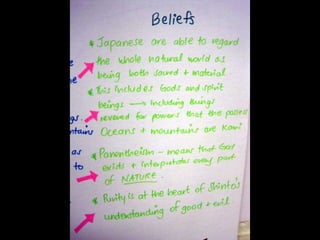 Beliefs
* Japanese are able to regard
the whole natural world as
being both sacred + material
* This includes Gods and spirit
beings → including things
revered for powers that the possess
Oceans + mountains are Kami
* Panentheism - means that God
exists + interpenetrates every part
of NATURE.
* Purity is at the heart of Shinto's
understanding of good + evil
e
ngs.
ntains
as
to